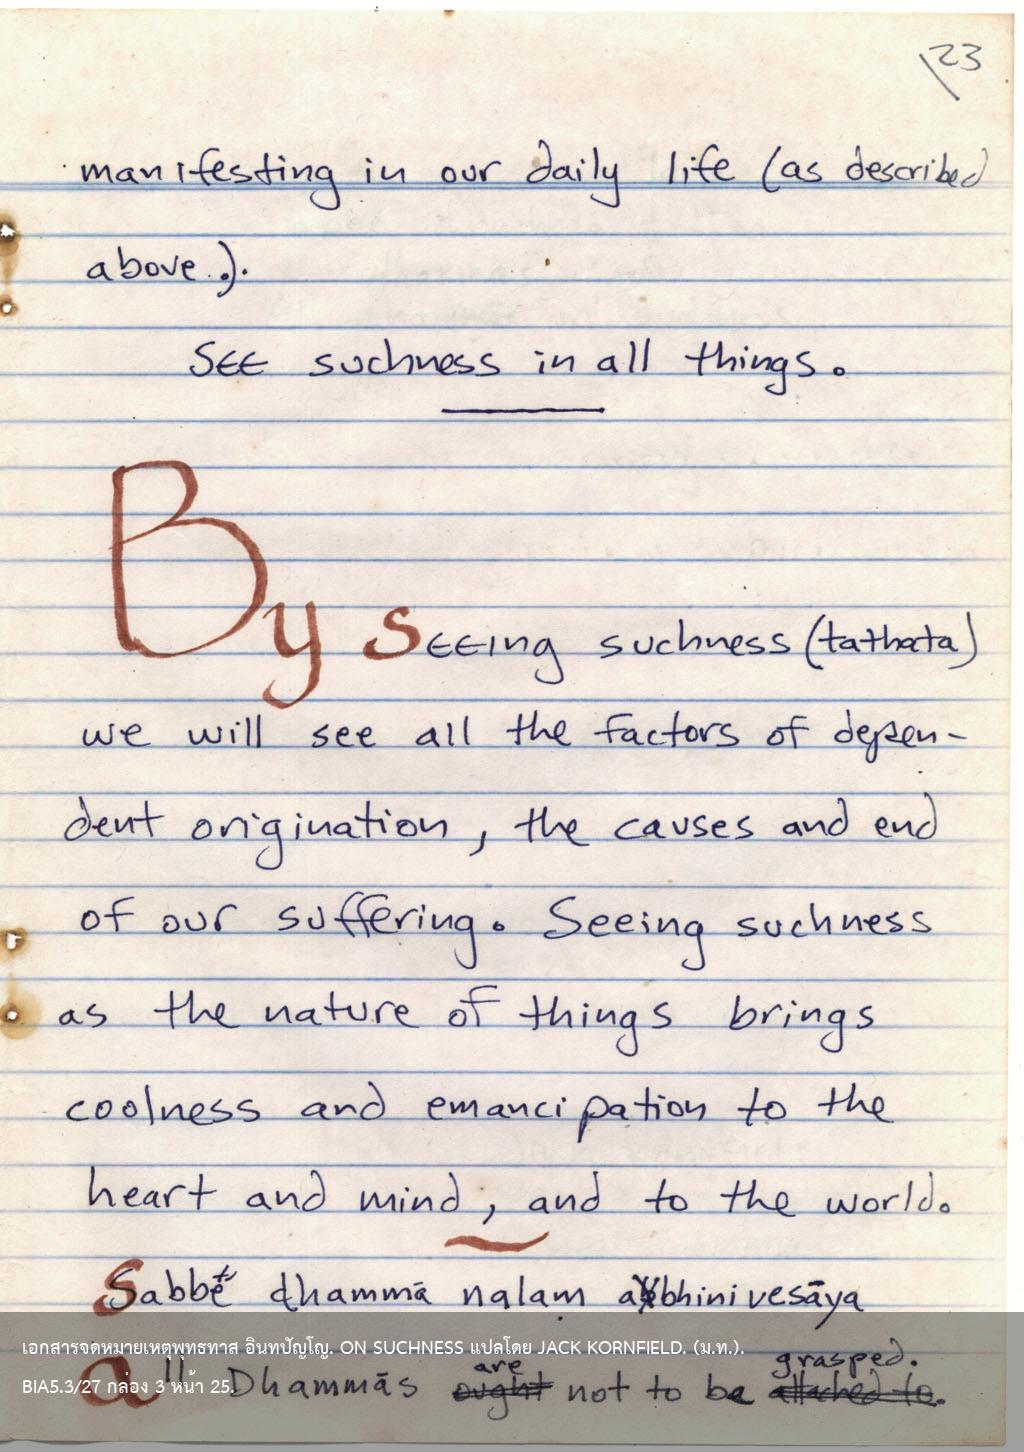 23
manifesting in our daily life (as described
above.).
SEE suchness in all things.
By seeing suchness (tathata)
we will see all the factors of depen-
dent origination, the causes and end
of our suffering. Seeing suchness
as the nature of things brings
coolness and emancipation to the
heart and mind, and to the world.
Sabbe dhammā nalam abhinivesāya
เอกสารจดหมายเหตุพุทธทาส อินทปัญโญ. ON SUCHNESS แปลโดย JACK KORNFIELD. (ม.ท.).
are grasped.
BIA5.3/27 กล่อง 3 หน้า 25.
all Dhammās ought not to be attached to.